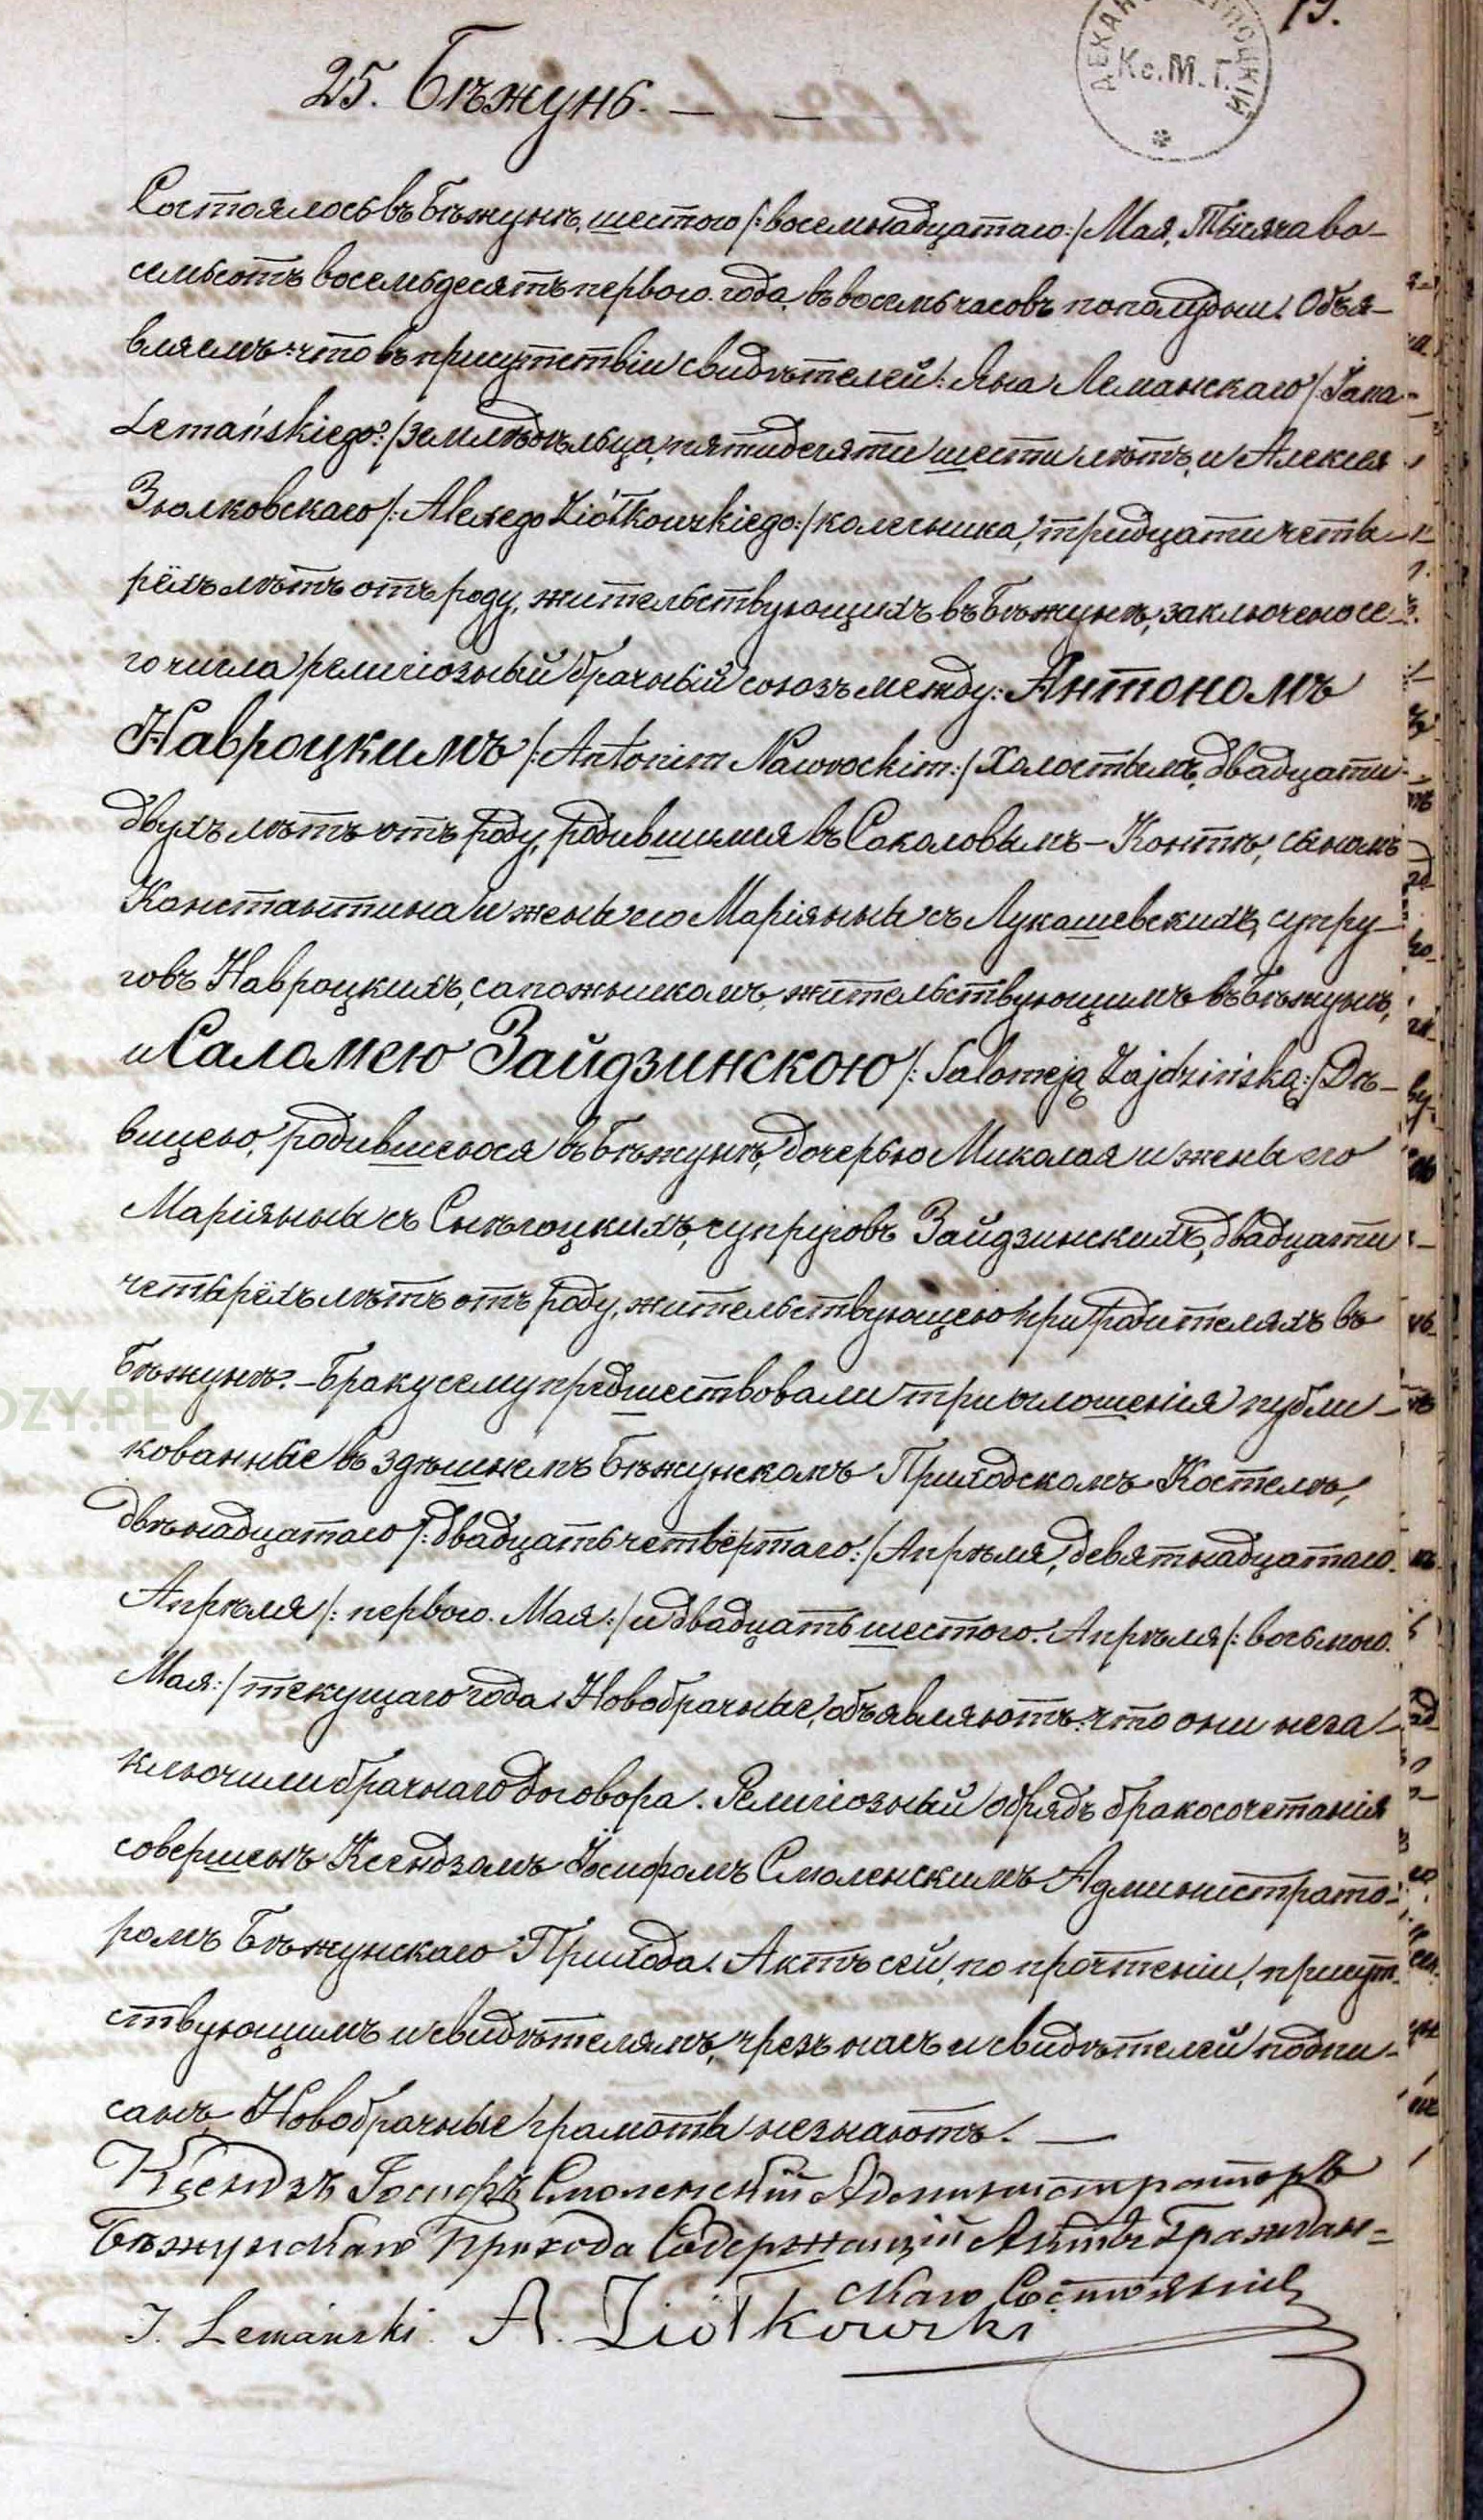 19.
ДЕКАН
Кс. М. Г.
25. Бѣжунь. — —
Состоялось въ Бѣжунѣ, шестого /: восемнадцатаго :/ Мая, Тысяча во-
семьсотъ восемьдесятъ первого года, въ восемь часовъ пополудни. Объя-
вляемъ: что въ присутствіи свидѣтелей: Яна Леманскаго /: Jana
Lemańskiego :/ земледѣльца, пятидесяти шести лѣтъ, и Алексея
Зюлковскаго /: Alexego Ziółkowskiego :/ колесника, тридцати четы-
рёхъ лѣтъ отъ роду, жительствующихъ въ Бѣжунѣ, заключено се-
го числа религіозный брачный союзъ между: Антономъ
Навроцкимъ /: Antonim Nawrockim :/ Холостымъ, двадцати
двухъ лѣтъ отъ роду, родившимся въ Соколовымъ-Контѣ, сыномъ
Константина и жены его Маріянны съ Лукашевскихъ, супру-
говъ Навроцкихъ, сапожникомъ, жительствующимъ въ Бѣжунѣ,
и Саломею Зайдзинскою /: Salomeją Zajdzińską :/ Дѣ-
вицею, родившеюся въ Бѣжунѣ, дочерью Миколая и жены его
Маріянны съ Снѣгоцкихъ, супруговъ Зайдзинскихъ, двадцати
четырёхъ лѣтъ отъ роду, жительствующею при родителяхъ въ
Бѣжунѣ. - Браку сему предшествовали три оглошенія публи-
кованные въ здѣшнемъ Бѣжунскомъ Приходскомъ Костелѣ,
двѣнадцатаго /: двадцать четвёртаго :/ Апрѣля, девятнадцатаго
Апрѣля /: первого Мая :/ и двадцать шестого Апрѣля /: восьмого
Мая :/ текущаго года. Новобрачные объявляютъ: что они неза-
ключили брачнаго договора. Религіозный обрядъ бракосочетанія
совершенъ Ксендзомъ Іосифомъ Смоленскимъ Администрато-
ромъ Бѣжунскаго Прихода. Актъ сей, по прочтеніи, присут-
ствующимъ и свидѣтелямъ, чрезъ насъ и свидѣтелей подпи-
санъ, Новобрачные грамоты незнаютъ. —
Ксендзъ Іосифъ Смоленскій Администраторъ
Бѣжунскаго Прихода Содержащій Акты Граждан=
скаго Состоянія
J. Lemański. A. Ziółkowski